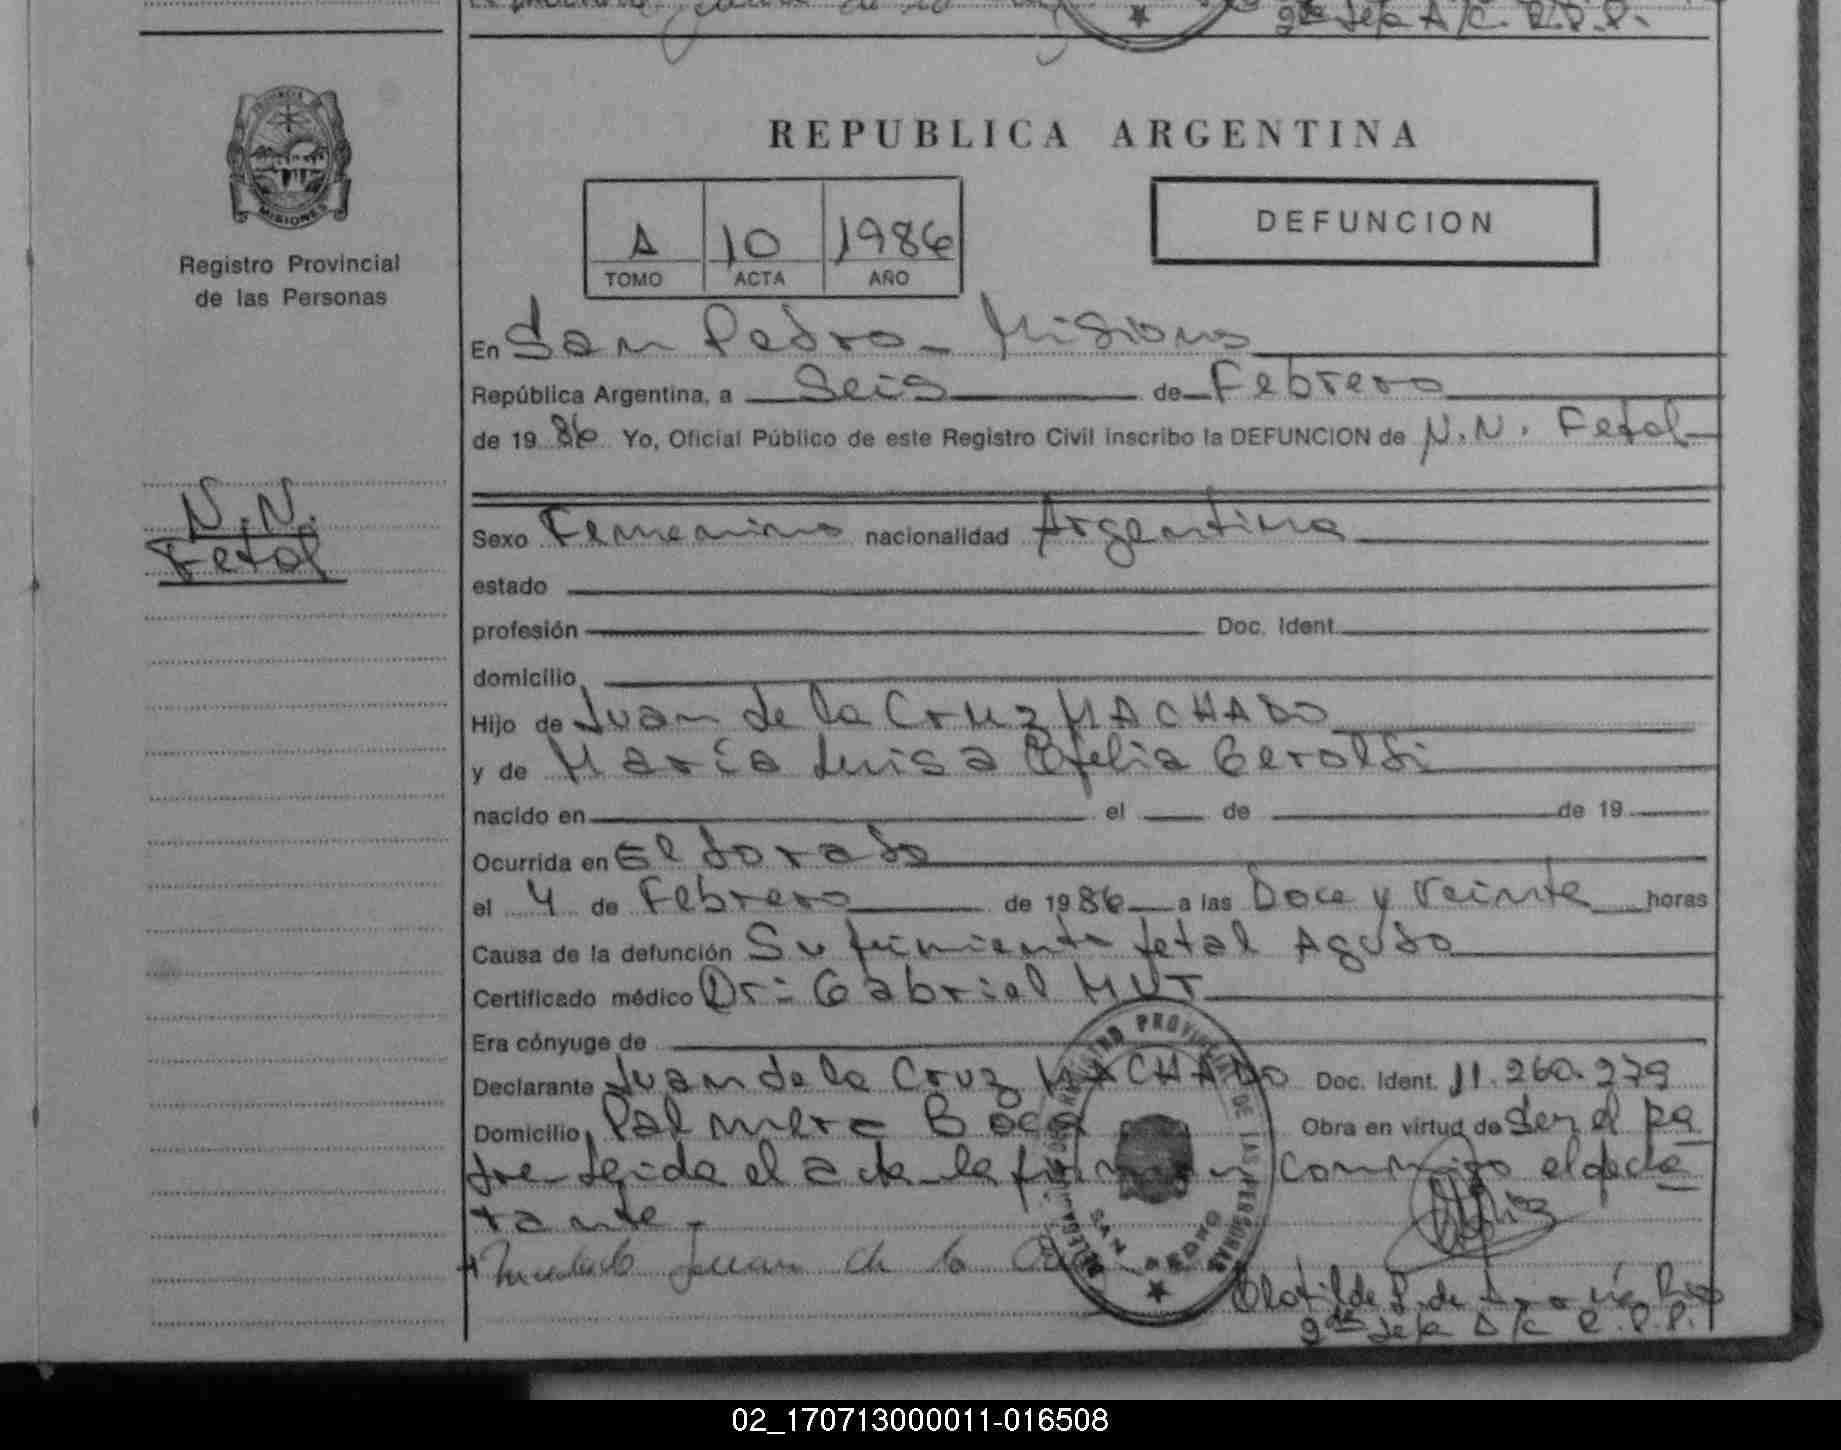 2da Jefa A/C. R.P.P.
PROVINCIA
MISIONES
Registro Provincial
de las Personas
REPUBLICA ARGENTINA
A 10 1986
TOMO ACTA AÑO
DEFUNCION
En San Pedro - Misiones
República Argentina, a Seis de Febrero
de 19 86 Yo, Oficial Público de este Registro Civil inscribo la DEFUNCION de N.N. Fetal
N.N.
Fetal
Sexo Femenino nacionalidad Argentina
estado
profesión Doc. Ident.
domicilio
Hijo de Juan de la Cruz MACHADO
y de María Luisa Ofelia Geroldi
nacido en el de de 19
Ocurrida en Eldorado
el 4 de Febrero de 1986 a las Doce y Veinte horas
Causa de la defunción Sufrimiento fetal Agudo
Certificado médico Dr: Gabriel MUT
Era cónyuge de
Declarante Juan de la Cruz MACHADO Doc. Ident. 11.260.279
Domicilio Palmera Boca Obra en virtud de Ser el pa
dre leida el acta la firman conmigo el decla
rante.-
Machado Juan de la
REGISTRO PROVINCIAL DE LAS PERSONAS
DELEGACION
SAN PEDRO
Clotilde de
2da Jefa A/C R.P.P.
02_170713000011-016508